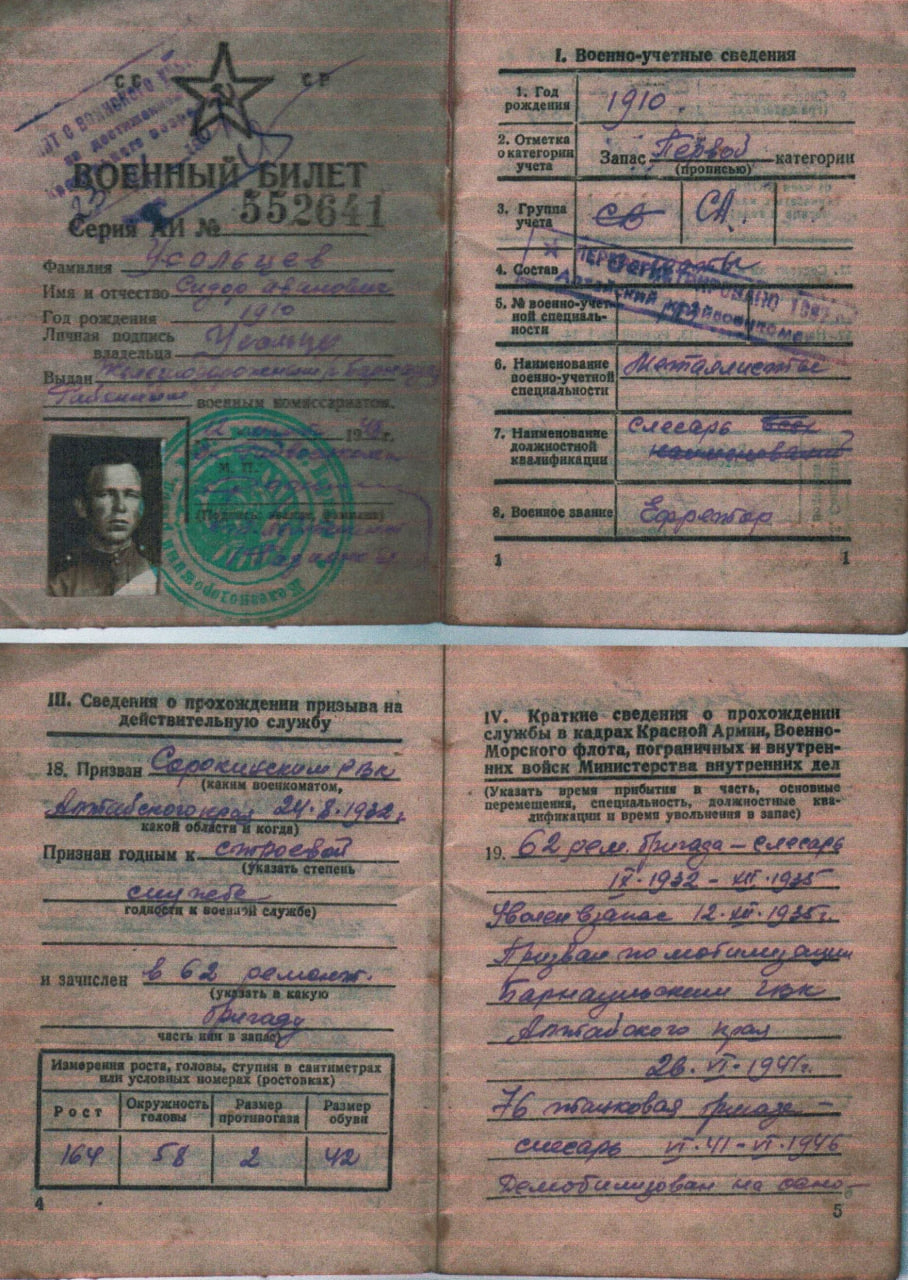 СССР
ВОЕННЫЙ БИЛЕТ
Серия АИ № 552641
Фамилия Усольцев
Имя и отчество Сидор Иванович
Год рождения 1910
Личная подпись
владельца Усольцев
Выдан Железнодорожным г. Барнаула
Районным военным комиссариатом.
194 г.
М. П.
I. Военно-учетные сведения
1. Год
рождения 1910.
2. Отметка
о категории
учета Запас Первой категории
(прописью)
3. Группа
учета СВ СА.
4. Состав
ПЕРЕРЕГИСТРИРОВАНО
Алтайский крайвоенкомат
5. № военно-учет-
ной специаль-
ности
6. Наименование
военно-учетной
специальности Металлисты
7. Наименование
должностной
квалификации слесарь
8. Военное звание Ефрейтор
1 1
III. Сведения о прохождении призыва на
действительную службу
18. Призван Сорокинским РВК
(каким военкоматом,
Алтайского края 24.8.1932г
какой области и когда)
Признан годным к строевой
(указать степень
службе
годности к военной службе)
и зачислен в 62 ремонт.
(указать в какую
бригаду
часть или в запас)
Измерения роста, головы, ступни в сантиметрах
или условных номерах (ростовках)
Рост Окружность головы Размер противогаза Размер обуви
164 58 2 42
4
IV. Краткие сведения о прохождении
службы в кадрах Красной Армии, Военно-
Морского флота, пограничных и внутрен-
них войск Министерства внутренних дел
(Указать время прибытия в часть, основные
перемещения, специальность, должностные ква-
лификации и время увольнения в запас)
19. 62 рем. бригада – слесарь
IX·1932 – XII·1935
Уволен в запас 12·XII·1935г.
Призван по мобилизации
Барнаульским ГВК
Алтайского края
26·VI·1941г.
76 танковая бригада –
слесарь VI·41–VI·1946
Демобилизован на осно-
5